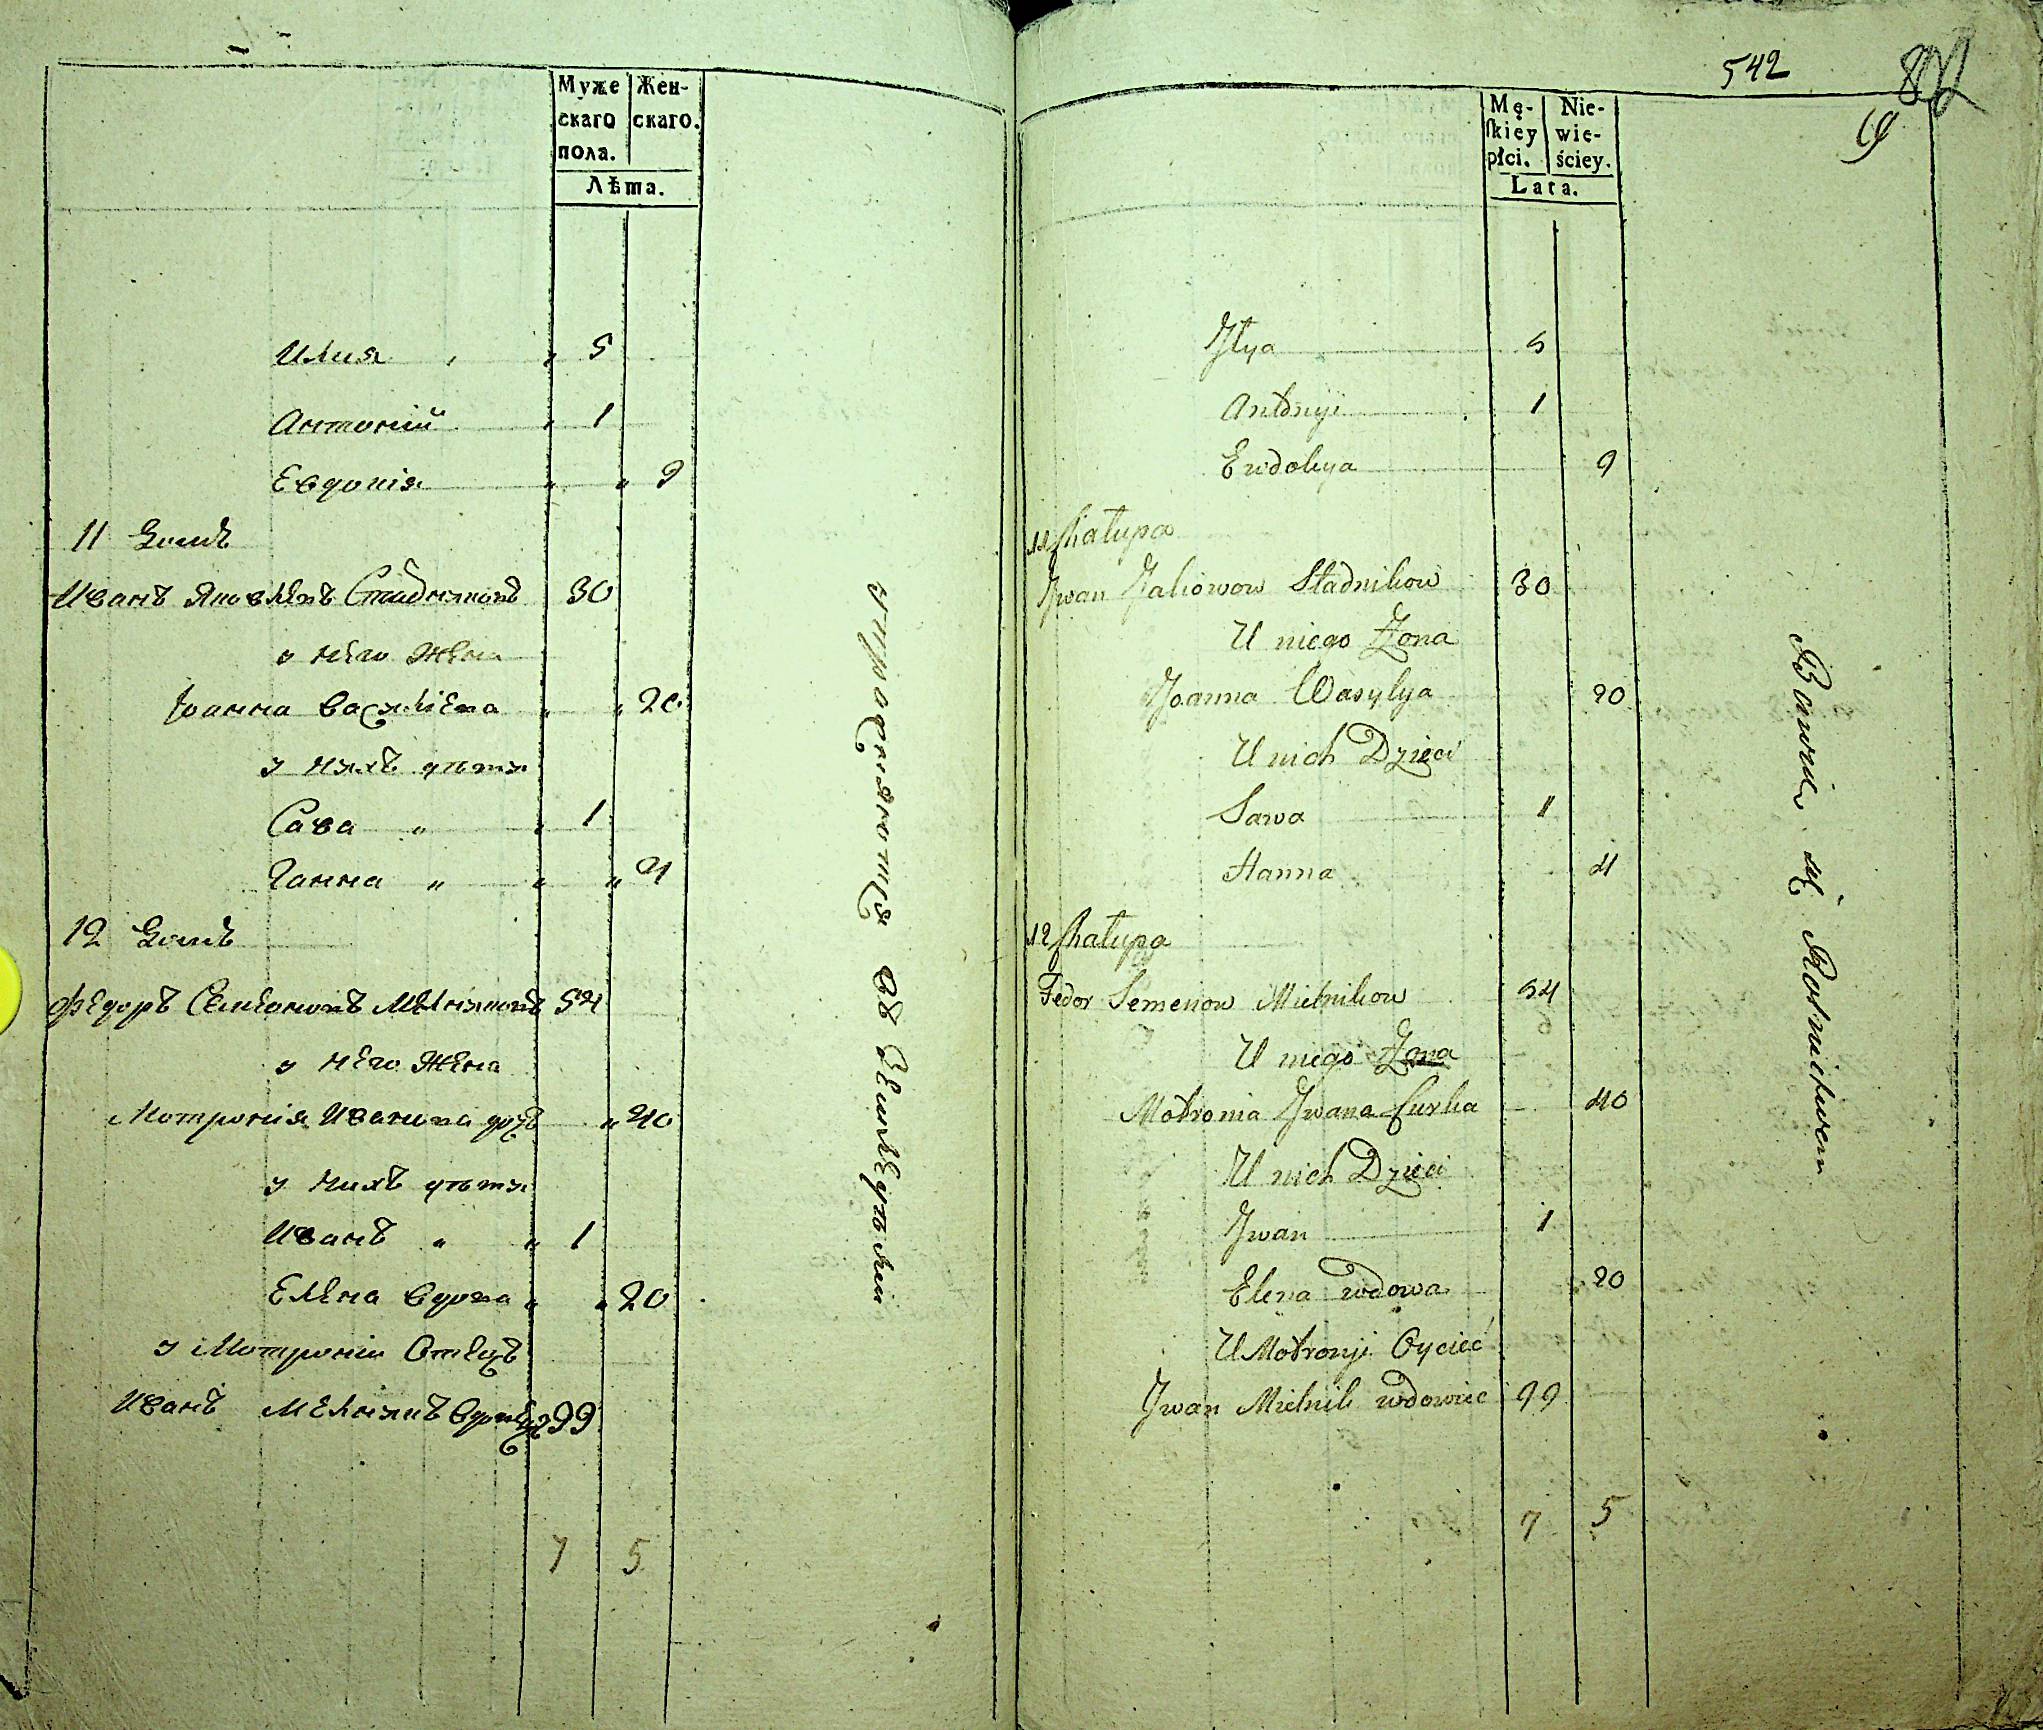 Муже Жен-
скаго скаго.
пола.
Лѣта.
Илия " " 5
Антоній " 1
Евдокія " " 9
11 Домъ
Иванъ Яковлевъ Стадниковъ 30
у него Жена
Іоанна Василіева " " 20
у нихъ дѣти
Сава " " 1
Ганна " " " 4
12 Домъ
Федоръ Семеновъ Мелниковъ 54
у него Жена
Мотронія Иванова дочь " 40
у нихъ дѣти
Иванъ " " 1
Елена вдова " " 20
у Мотроніи Отецъ
Иванъ Мелникъ вдовецъ 99
7 5
упродняются въ Земледѣліи
542
19
Mę- Nie-
ſkiey wie-
płci. ściey.
Lata.
Jłya 5
Antonyi 1
Ewdokya 9
11 Chałupa
Jwan Jakowow Stadnikow 30
U niego Żona
Joanna Wasylya 20
U nich Dzieci
Sawa 1
Hanna 4
12 Chałupa
Fedor Semenow Mielnikow 54
U niego Żona
Motronia Jwana Curka 40
U nich Dzieci
Jwan 1
Elena wdowa 20
U Motronyi Oyciec
Jwan Mielnik wdowiec 99
7 5
Bawią się Rolnictwem